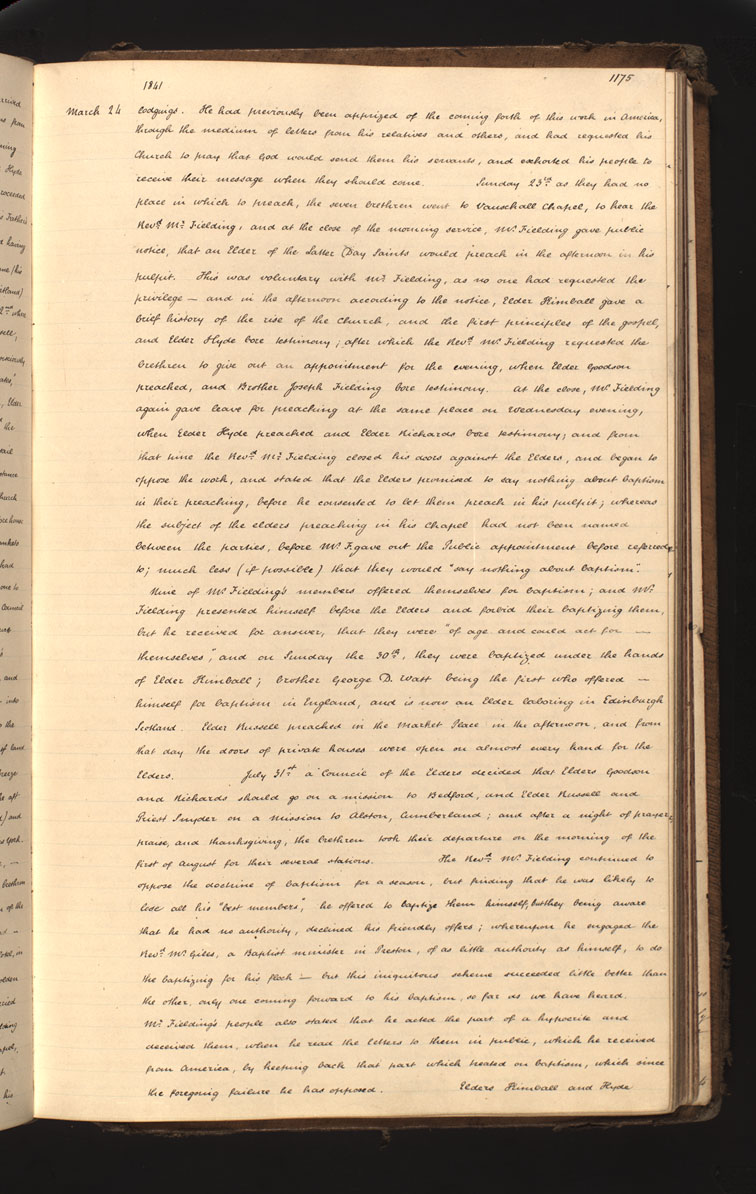 1841
1175
March 24 lodgings. He had previously been apprized of the coming forth of this work in America,
through the medium of letters from his relatives and others, and had requested his
Church to pray that God would send them his servants, and exhorted his people to
receive their message when they should come. Sunday 23rd. as they had no
place in which to preach, the seven brethren went to Vauxhall Chapel, to hear the
Revd. Mr. Fielding, and at the close of the morning service, Mr. Fielding gave public
notice, that an Elder of the Latter Day Saints would preach in the afternoon in his
pulpit. This was voluntary with Mr. Fielding, as no one had requested the
privilege — and in the afternoon according to the notice, Elder Kimball gave a
brief history of the rise of the Church, and the first principles of the gospel,
and Elder Hyde bore testimony; after which the Revd. Mr. Fielding requested the
brethren to give out an appointment for the evening, when Elder Goodson
preached, and Brother Joseph Fielding bore testimony. At the close, Mr. Fielding
again gave leave for preaching at the same place on Wednesday evening,
when Elder Hyde preached and Elder Richards bore testimony; and from
that time the Revd. Mr. Fielding closed his doors against the Elders, and began to
oppose the work, and stated that the Elders promised to say nothing about baptism
in their preaching, before he consented to let them preach in his pulpit; whereas
the subject of the elders preaching in his chapel had not been named
between the parties, before Mr. F. gave out the Public appointment before referred
to; much less (if possible) that they would "say nothing about baptism".
Nine of Mr. Fielding's members offered themselves for baptism; and Mr.
Fielding presented himself before the Elders and forbid their baptizing them,
but he received for answer, that they were "of age and could act for —
themselves", and on Sunday the 30th., they were baptized under the hands
of Elder Kimball; brother George D. Watt being the first who offered —
himself for baptism in England, and is now an Elder laboring in Edinburgh
Scotland. Elder Russell preached in the Market Place in the afternoon, and from
that day the doors of private houses were open on almost every hand for the
Elders. July 31st. a Council of the Elders decided that Elders Goodson
and Richards should go on a mission to Bedford, and Elder Russell and
Priest Snyder on a mission to Alston, Cumberland; and after a night of prayer,
praise, and thanksgiving, the brethren took their departure on the morning of the
first of August for their several stations. The Revd. Mr. Fielding continued to
oppose the doctrine of baptism for a season, but finding that he was likely to
lose all his "best members", he offered to baptize them himself, but they being aware
that he had no authority, declined his friendly offers; whereupon he engaged the
Revd. Mr. Giles, a Baptist minister in Preston, of as little authority as himself, to do
the baptizing for his flock — but this iniquitous scheme succeeded little better than
the other, only one coming forward to his baptism, so far as we have heard.
Mr. Fielding's people also stated that he acted the part of a hypocrite and
deceived them, when he read the letters to them in public, which he received
from America, by keeping back that part which treated on baptism, which since
the foregoing failure he has opposed. Elders Kimball and Hyde